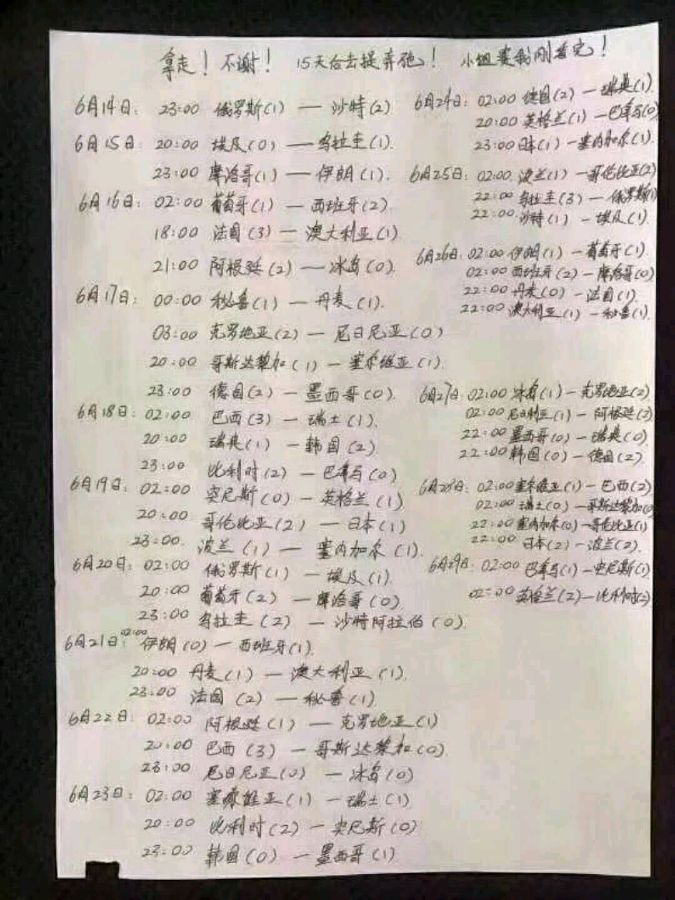 拿走！不谢！ 15天后去提奔驰！ 小组赛我刚看完！
6月14日： 23:00 俄罗斯(1) — 沙特(2)
6月15日： 20:00 埃及(0) — 乌拉圭(1).
23:00 摩洛哥(1) — 伊朗(1).
6月16日： 02:00 葡萄牙(1) — 西班牙(2).
18:00 法国(3) — 澳大利亚(1)
21:00 阿根廷(2) — 冰岛(0).
6月17日： 00:00 秘鲁(1) — 丹麦(1).
03:00 克罗地亚(2) — 尼日尼亚(0)
20:00 哥斯达黎加(1) — 塞尔维亚(1).
23:00 德国(2) — 墨西哥(0).
6月18日： 02:00 巴西(3) — 瑞士(1).
20:00 瑞典(1) — 韩国(2)
23:00 比利时(2) — 巴拿马(0)
6月19日： 02:00 突尼斯(0) — 英格兰(1)
20:00 哥伦比亚(2) — 日本(1)
23:00. 波兰(1) — 塞内加尔(1).
6月20日： 02:00 俄罗斯(1) — 埃及(1).
20:00 葡萄牙(2) — 摩洛哥(0)
23:00 乌拉圭(2) — 沙特阿拉伯(0).
6月21日： 02:00 伊朗(0) — 西班牙(1).
20:00 丹麦(1) — 澳大利亚(1)
23:00 法国(2) — 秘鲁(1)
6月22日： 02:00 阿根廷(1) — 克罗地亚(1)
20:00 巴西(3) — 哥斯达黎加(0)
23:00 尼日尼亚(0) — 冰岛(0)
6月23日： 02:00 塞尔维亚(1) — 瑞士(1)
20:00 比利时(2) — 突尼斯(0)
23:00 韩国(0) — 墨西哥(1)
6月24日： 02:00 德国(2) — 瑞典(1).
20:00 英格兰(1) — 巴拿马(0)
23:00 日本(1) — 塞内加尔(1).
6月25日： 02:00. 波兰(1) — 哥伦比亚(2)
22:00 乌拉圭(3) — 俄罗斯(1)
22:00. 沙特(1) — 埃及(1).
6月26日： 02:00 伊朗(1) — 葡萄牙(1).
02:00 西班牙(2) — 摩洛哥(0)
22:00 丹麦(0) — 法国(1)
22:00 澳大利亚(1) — 秘鲁(1)
6月27日： 02:00 冰岛(1) — 克罗地亚(2)
02:00 尼日利亚(1) — 阿根廷(2)
22:00 墨西哥(0) — 瑞典(0)
22:00 韩国(0) — 德国(2).
6月28日： 02:00 塞尔维亚(1) — 巴西(2)
02:00 瑞士(0) — 哥斯达黎加(0)
22:00 塞内加尔(0) — 哥伦比亚(1)
22:00 日本(2) — 波兰(2).
6月29日： 02:00 巴拿马(1) — 突尼斯(1)
02:00 英格兰(2) — 比利时(2)